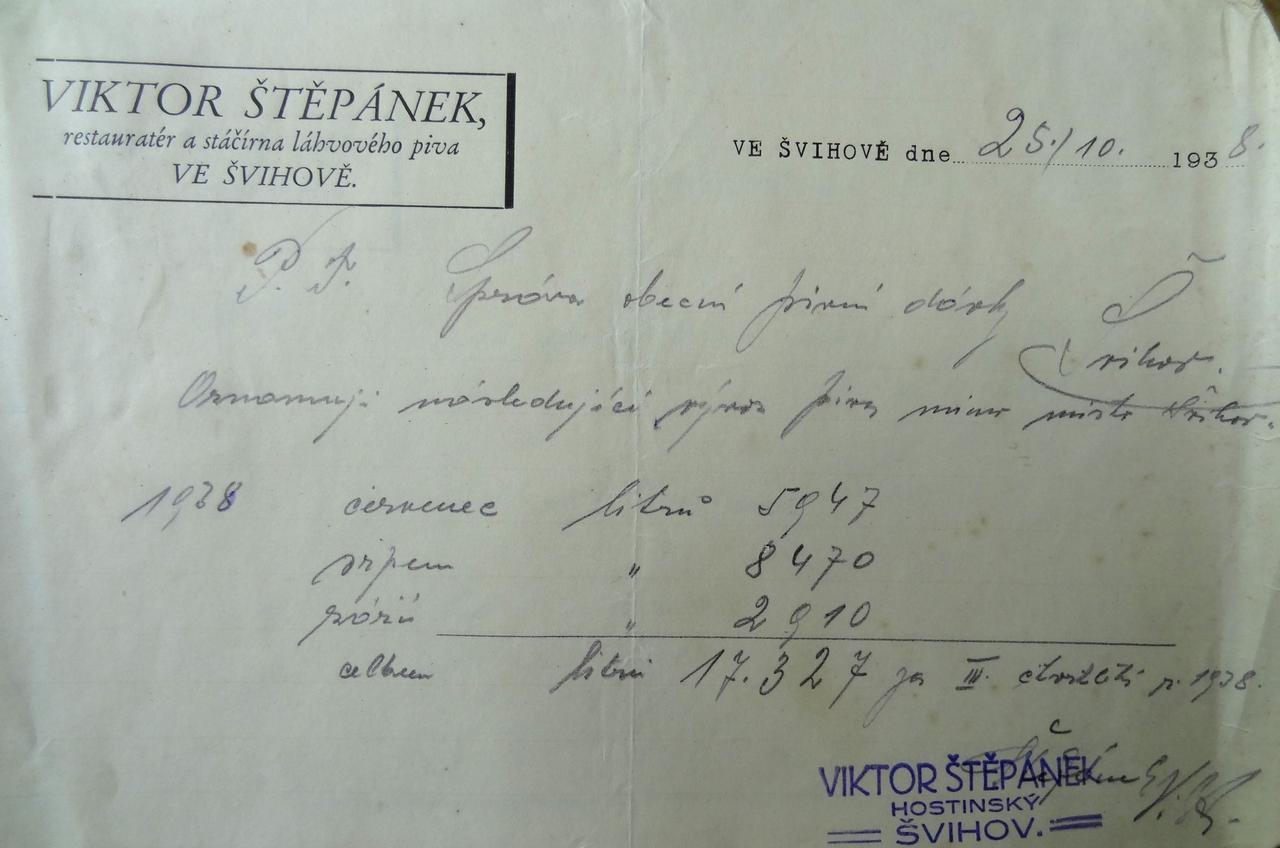 VIKTOR ŠTĚPÁNEK,
restauratér a stáčírna láhvového piva
VE ŠVIHOVĚ.
VE ŠVIHOVĚ dne 25./10. 1938.
P. T. Správa obecní pivní dávky
Švihov.
Oznamuji následující vývoz piva mimo místo Švihov.
1938 červenec litrů 5947
srpen " 8470
září " 2910
celkem litrů 17.327 za III. čtvrtletí r. 1938.
VIKTOR ŠTĚPÁNEK
HOSTINSKÝ
ŠVIHOV.